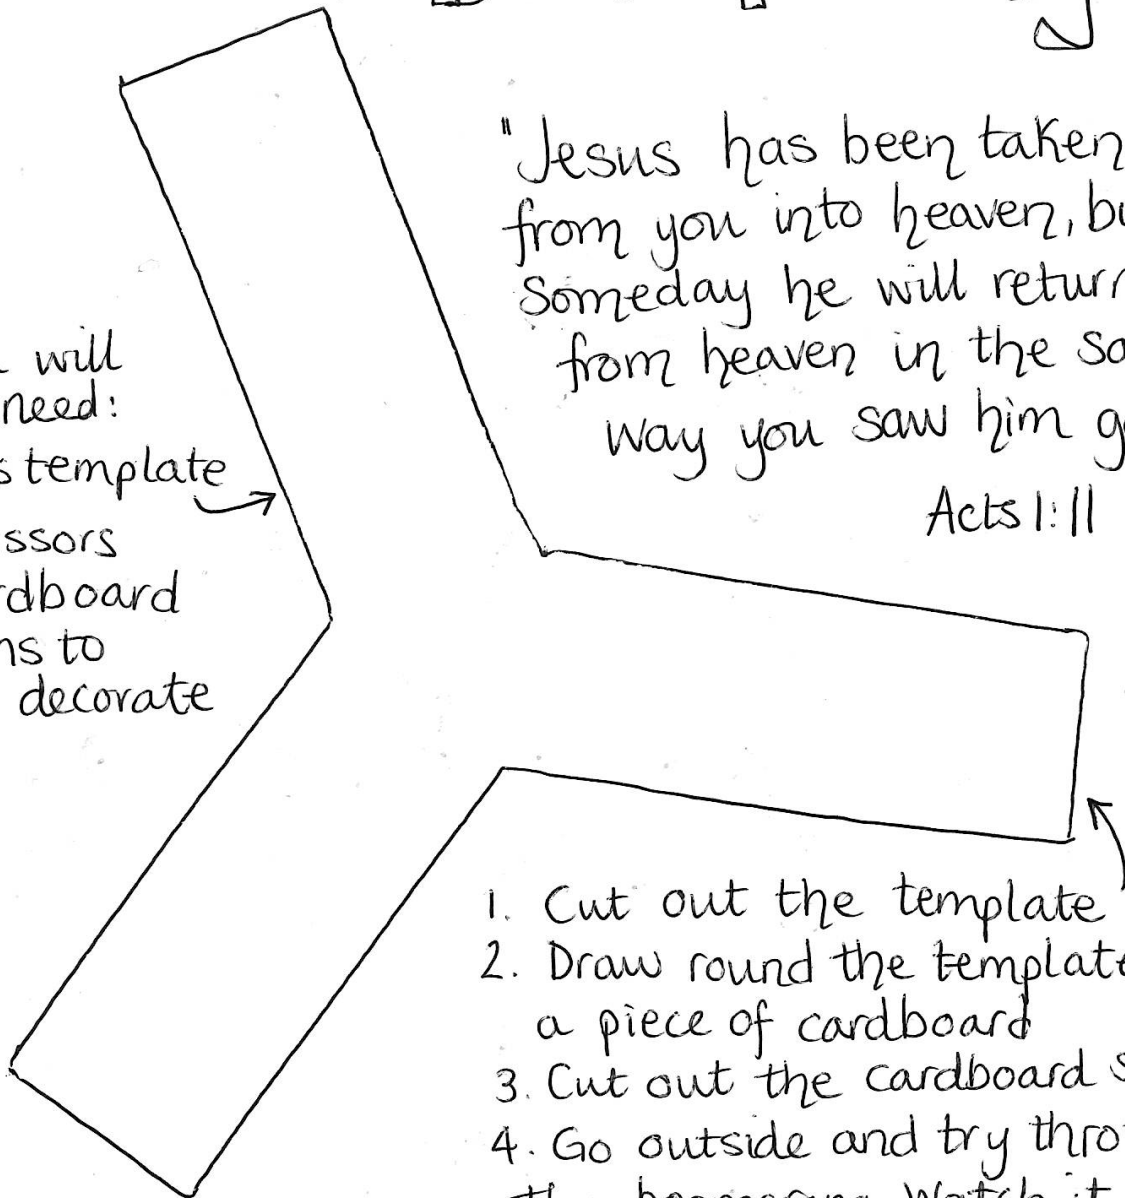 "Jesus has been taken
from you into heaven, bu
Someday he will return
from heaven in the sa
way you saw him g
Acts 1:11
will
need:
s template
ssors
rdboard
ns to
decorate
1. Cut out the template
2. Draw round the template
a piece of cardboard
3. Cut out the cardboard s
4. Go outside and try thro